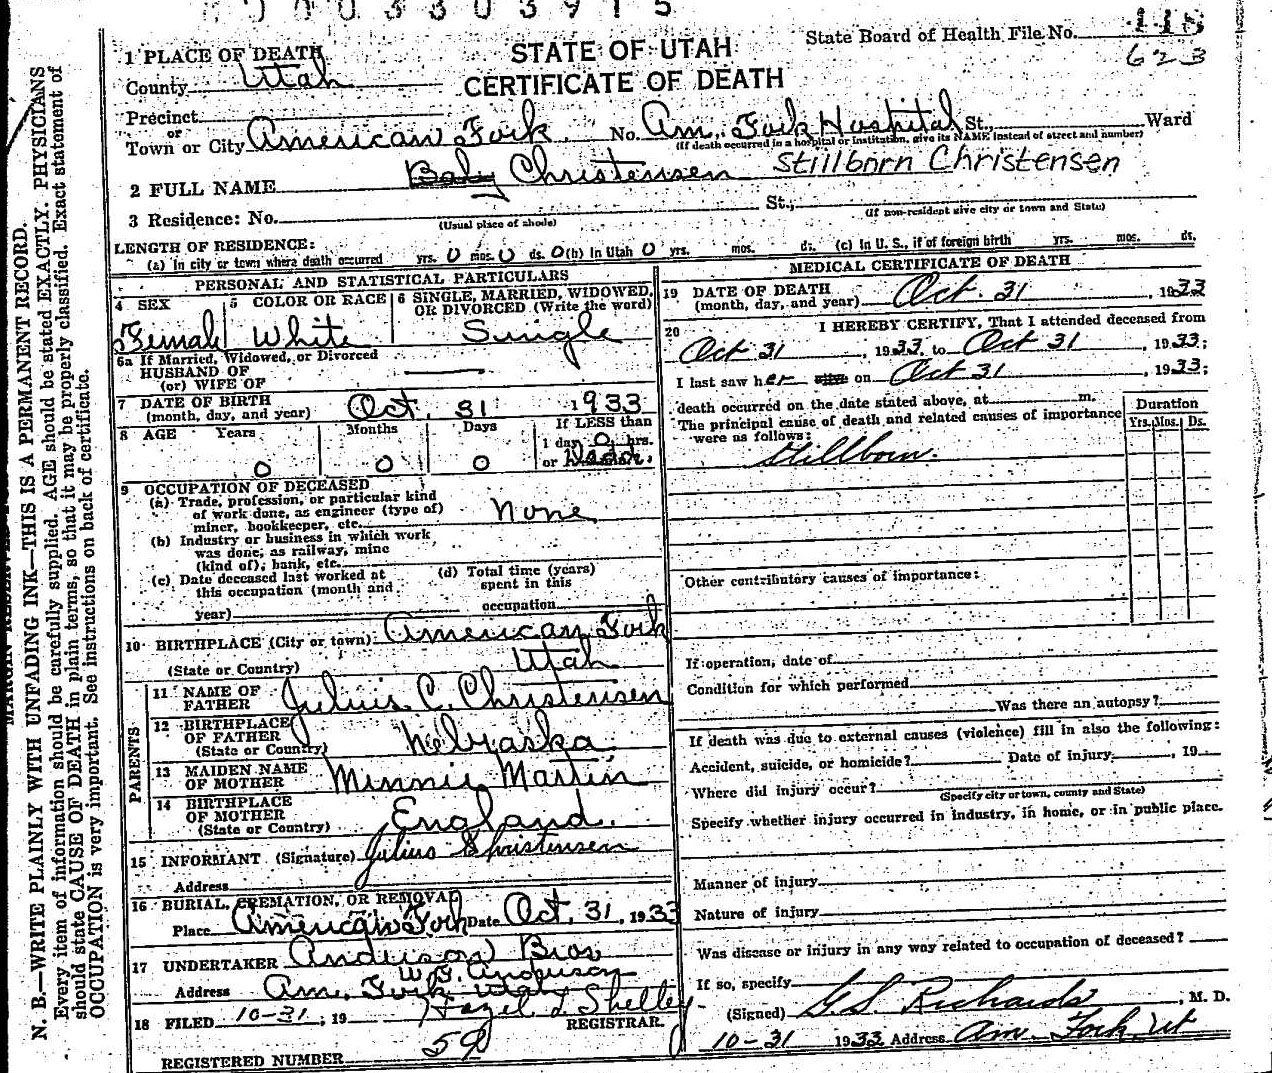 0003303915
STATE OF UTAH
CERTIFICATE OF DEATH
State Board of Health File No. 115
623
1 PLACE OF DEATH
County Utah
Precinct
or
Town or City American Fork No. Am. Fork Hospital St., Ward
(If death occurred in a hospital or institution, give its NAME instead of street and number)
2 FULL NAME Baby Christensen Stillborn Christensen
3 Residence: No. St.,
(Usual place of abode) (If non-resident give city or town and State)
LENGTH OF RESIDENCE:
(a) In city or town where death occurred yrs. 0 mos. 0 ds. 0 (b) In Utah 0 yrs. mos. ds. (c) In U. S., if of foreign birth yrs. mos. ds.
PERSONAL AND STATISTICAL PARTICULARS
4 SEX 5 COLOR OR RACE 6 SINGLE, MARRIED, WIDOWED, OR DIVORCED (Write the word)
Female White Single
6a If Married, Widowed, or Divorced
HUSBAND OF
(or) WIFE OF
7 DATE OF BIRTH
(month, day, and year) Oct. 31 1933
8 AGE Years Months Days If LESS than
1 day 0 hrs.
0 0 0 or
9 OCCUPATION OF DECEASED
(a) Trade, profession, or particular kind
of work done, as engineer (type of)
miner, bookkeeper, etc. None
(b) Industry or business in which work
was done, as railway, mine
(kind of), bank, etc.
(c) Date deceased last worked at
this occupation (month and
year)
(d) Total time (years)
spent in this
occupation
10 BIRTHPLACE (City or town) American Fork
(State or Country) Utah
PARENTS
11 NAME OF
FATHER Julius C. Christensen
12 BIRTHPLACE
OF FATHER
(State or Country) Nebraska
13 MAIDEN NAME
OF MOTHER Minnie Martin
14 BIRTHPLACE
OF MOTHER
(State or Country) England.
15 INFORMANT (Signature) Julius Christensen
Address
16 BURIAL, CREMATION, OR REMOVAL
Place American Fork Date Oct. 31, 1933
17 UNDERTAKER Anderson Bros
W. G. Anderson
Address Am. Fork Utah
18 FILED 10-31, 19 Hazel L Shelley
REGISTRAR.
REGISTERED NUMBER 59
MEDICAL CERTIFICATE OF DEATH
19 DATE OF DEATH
(month, day, and year) Oct. 31 1933
20 I HEREBY CERTIFY, That I attended deceased from
Oct 31, 1933, to Oct 31, 1933;
I last saw her alive on Oct 31, 1933;
death occurred on the date stated above, at m.
The principal cause of death and related causes of importance
were as follows:
Duration
Yrs. Mos. Ds.
Stillborn.
Other contributory causes of importance:
If operation, date of
Condition for which performed
Was there an autopsy?
If death was due to external causes (violence) fill in also the following:
Accident, suicide, or homicide? Date of injury, 19
Where did injury occur?
(Specify city or town, county and State)
Specify whether injury occurred in industry, in home, or in public place.
Manner of injury
Nature of injury
Was disease or injury in any way related to occupation of deceased?
If so, specify
(Signed) G. S. Richards, M. D.
10-31 1933 Address Am. Fork, Ut
N. B.—WRITE PLAINLY WITH UNFADING INK—THIS IS A PERMANENT RECORD.
Every item of information should be carefully supplied. AGE should be stated EXACTLY. PHYSICIANS
should state CAUSE OF DEATH in plain terms, so that it may be properly classified. Exact statement of
OCCUPATION is very important. See instructions on back of certificate.